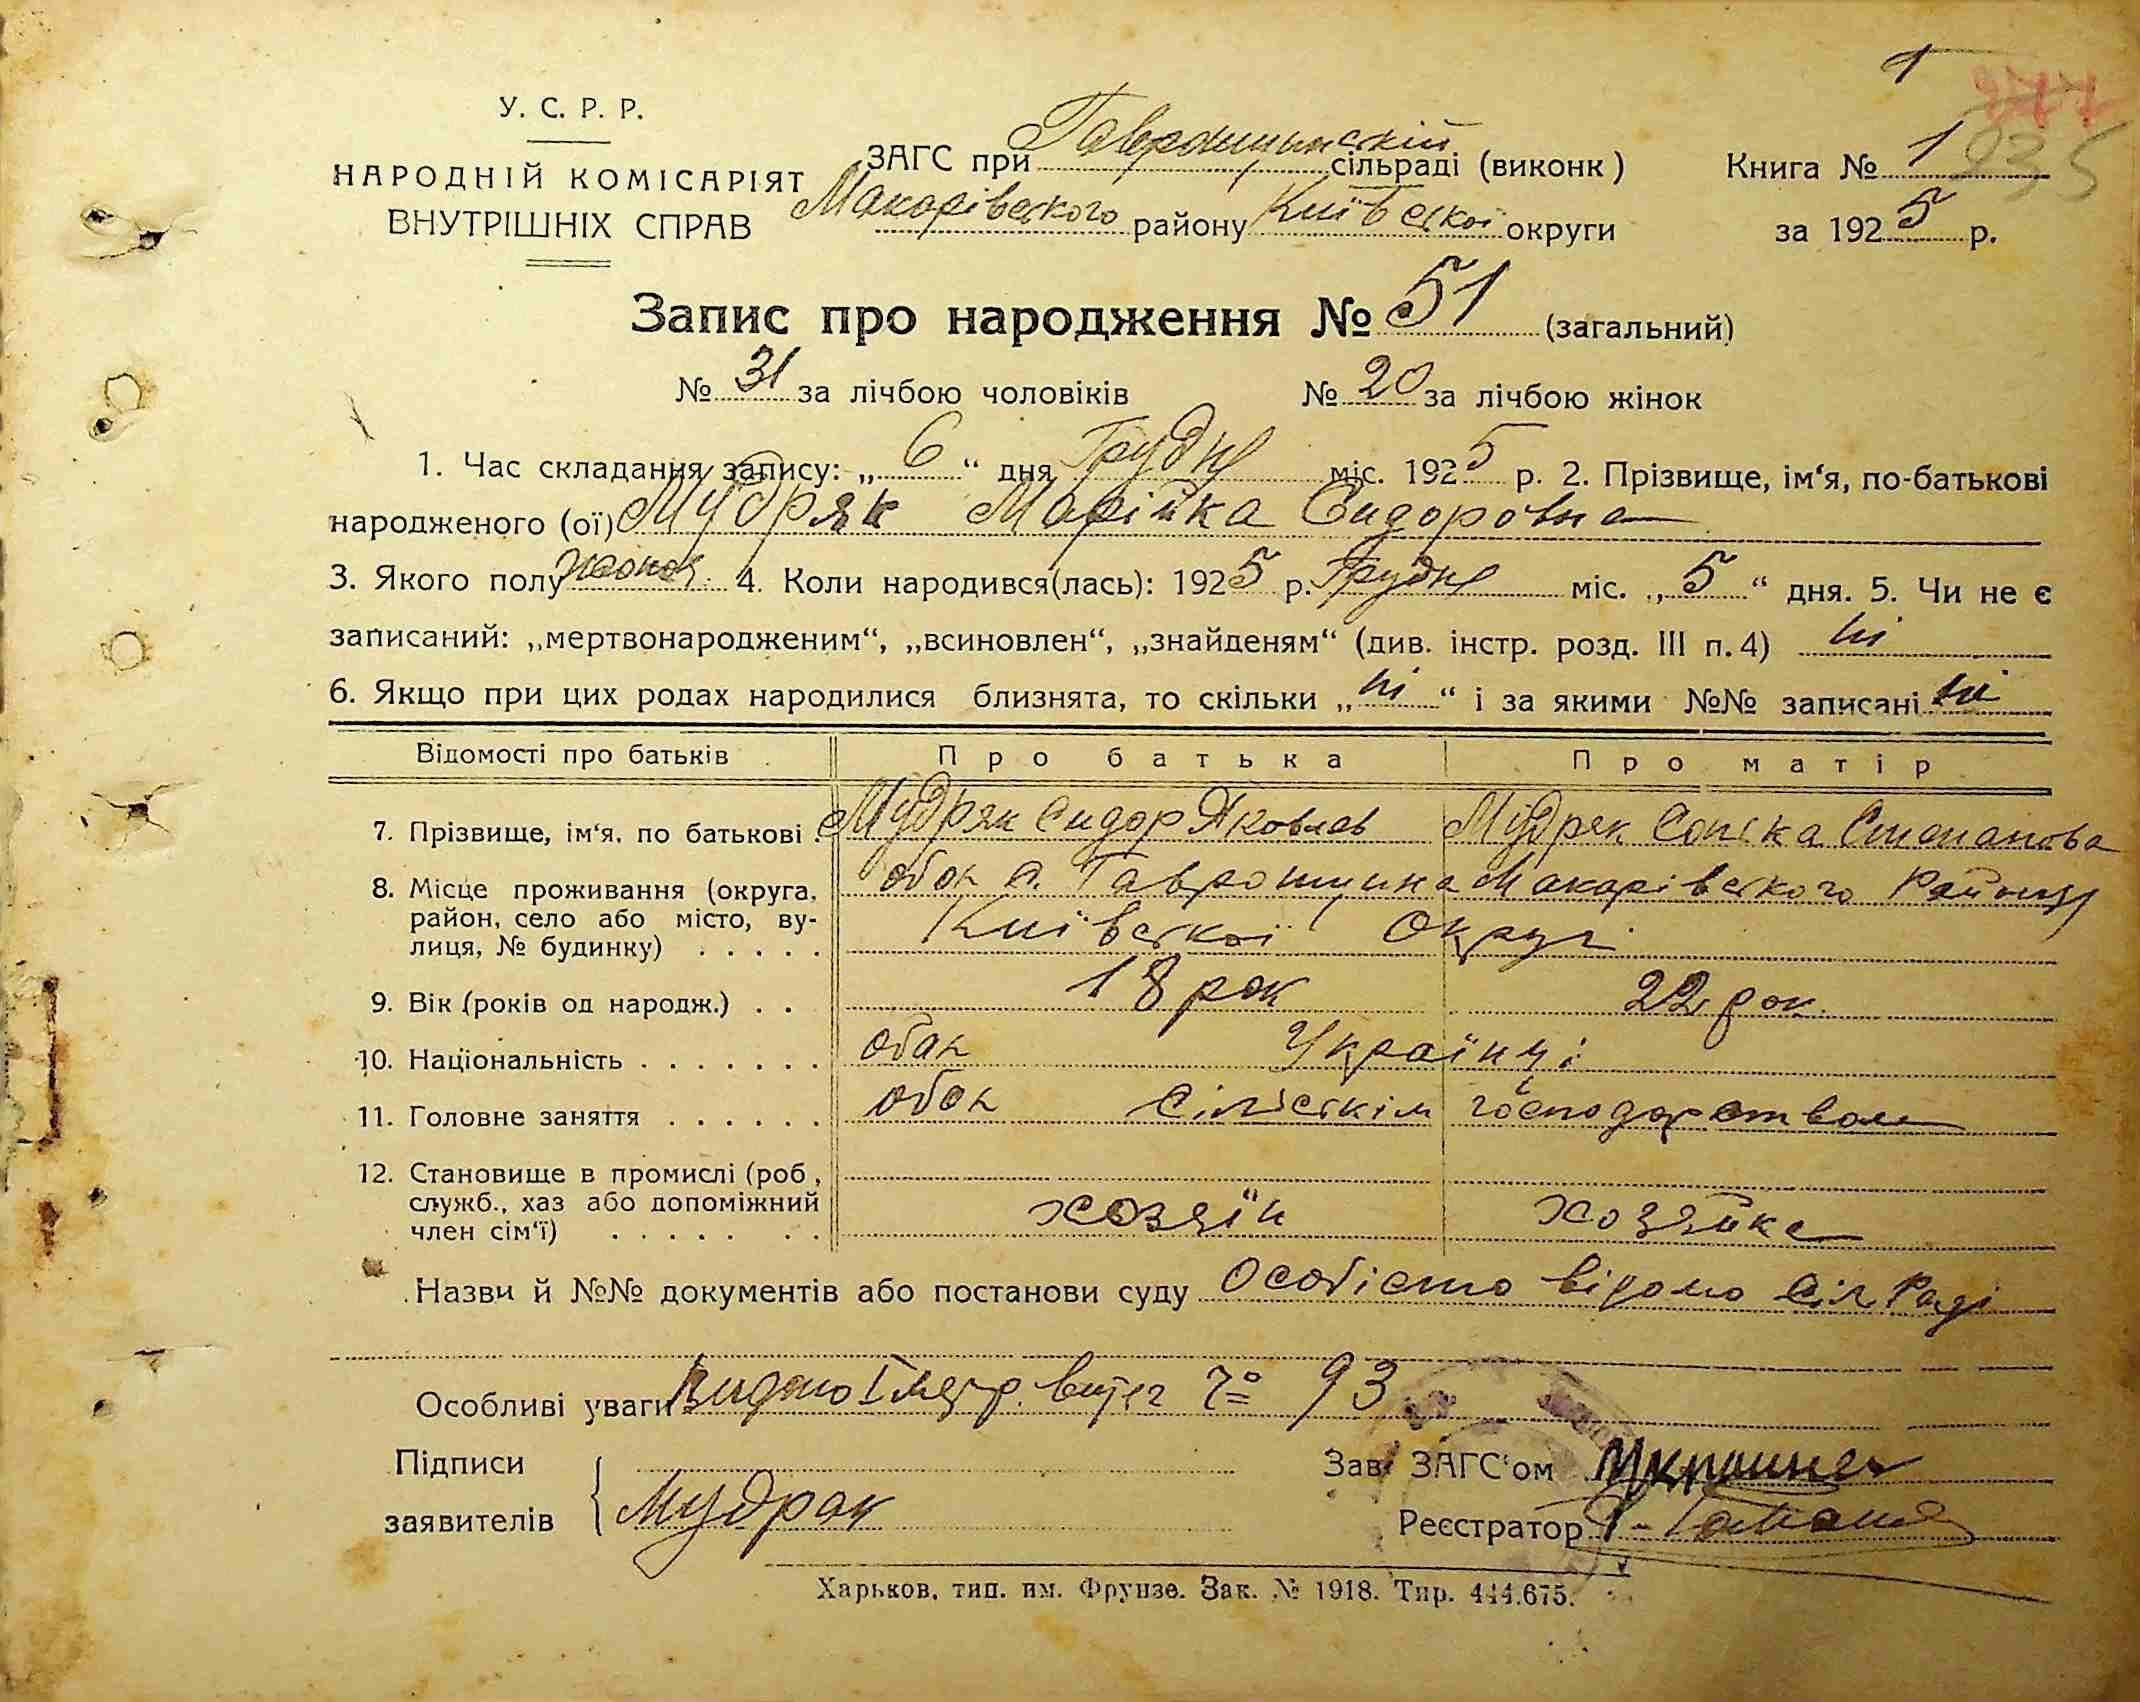 1
235
У. С. Р. Р.
НАРОДНІЙ КОМІСАРІЯТ
ВНУТРІШНІХ СПРАВ
ЗАГС при Гавронщинскій сільраді (виконк)
Макарівского району Київскоі округи
Книга № 1
за 1925 р.
Запис про народження № 51 (загальний)
№ 31 за лічбою чоловіків № 20 за лічбою жінок
1. Час складання запису: „ 6 “ дня Грудня міс. 1925 р. 2. Прізвище, ім‘я, по-батькові
народженого (ої) Мудряк Марійка Сидоровна
3. Якого полу жоноч. 4. Коли народився(лась): 1925 р. Грудня міс. „ 5 “ дня. 5. Чи не є
записаний: „мертвонародженим“, „всиновлен“, „знайденям“ (див. інстр. розд. III п. 4) ні
6. Якщо при цих родах народилися близнята, то скільки „ ні “ і за якими №№ записані ні
Відомості про батьків Про батька Про матір
7. Прізвище, ім‘я, по батькові . Мудряк Сидор Яковлев Мудряк Сопка Степанова
8. Місце проживання (округа, район, село або місто, вулиця, № будинку) . . . . . обох с. Гавронщина Макарівского Району
Київскоі Округі
9. Вік (років од народж.) . . 18 рок 22 рок.
10. Національність . . . . . . . обох Українці
11. Головне заняття . . . . . . обох сільскім господарством
12. Становище в промислі (роб., служб., хаз або допоміжний член сім‘ї) . . . . . . . хозяїн хозяйка
Назви й №№ документів або постанови суду Особісто відомо Сіл Раді
Особливі уваги Видано 93
Підписи
заявителів Мудрак
Зав. ЗАГС‘ом
Реєстратор
Харьков, тип. им. Фрунзе. Зак. № 1918. Тир. 444.675.